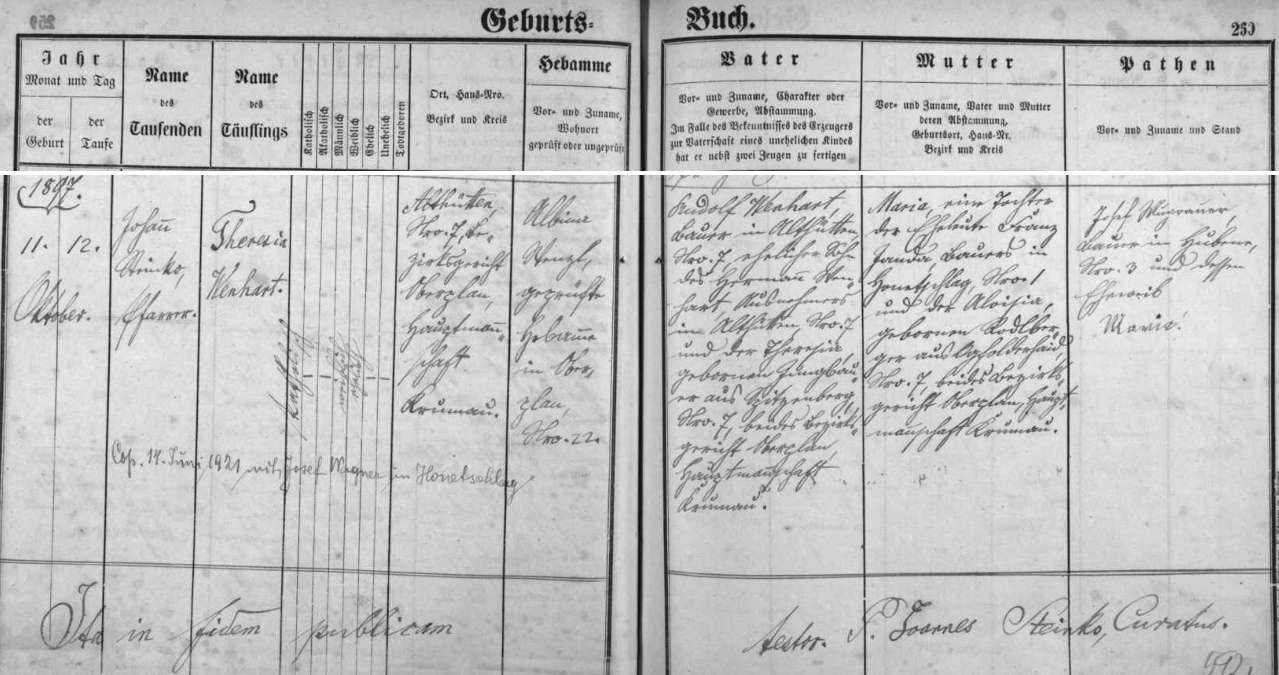 259
Geburts-
Jahr
Monat und Tag
der Geburt
der Taufe
Name
des
Taufenden
Name
des
Täuflings
Katholisch
Akatholisch
Männlich
Weiblich
Ehelich
Unehelich
Todtgeboren
Ort, Haus-Nro.
Bezirk und Kreis
Hebamme
Vor- und Zuname,
Wohnort
geprüft oder ungeprüft
1897.
11. 12.
Oktober.
Johañ
Steinko,
Pfarrer.
Theresia
Wenhart.
katholisch
weiblich
ehelich
Althütten,
Nro. 7, Be-
zirksgericht
Oberplan,
Hauptmañ-
schaft
Krumau.
Albine
Stenzl,
geprüfte
Hebame
in Ober-
plan,
Nro. 22.
Cop. 14. Juni 1921 mit Josef Wagner in Honetschlag
Ita in fidem publicam
Buch.
260
Vater
Vor- und Zuname, Charakter oder
Gewerbe, Abstammung.
Im Falle des Bekenntnisses des Erzeugers
zur Vaterschaft eines unehelichen Kindes
hat er nebst zwei Zeugen zu fertigen
Mutter
Vor- und Zuname, Vater und Mutter
deren Abstammung,
Geburtsort, Haus-Nr.
Bezirk und Kreis
Pathen
Vor- und Zuname und Stand
Rudolf Wenhart,
Bauer in Althütten,
Nro. 7, ehelicher Sohn
des Hermañ Wen-
hart, Ausnehmers
in Althütten Nro. 7
und der Theresia,
gebornen Jungbau-
er aus Spitzenberg,
Nro. 7, beides Bezirks-
gericht Oberplan,
Hauptmañschaft
Krumau.
Maria, eine Tochter
der Eheleute Franz
Janda, Bauers in
Honetschlag, Nro. 1
und der Aloisia,
gebornen Kodlber-
ger aus Ogfolderhaid,
Nro. 7, beides Bezirks-
gericht Oberplan, Haupt-
mañschaft Krumau.
Josef
Bauer in Hubene,
Nro. 3 und dessen
Eheweib
Maria.
testor. P. Joannes Steinko, Curatus.
592.